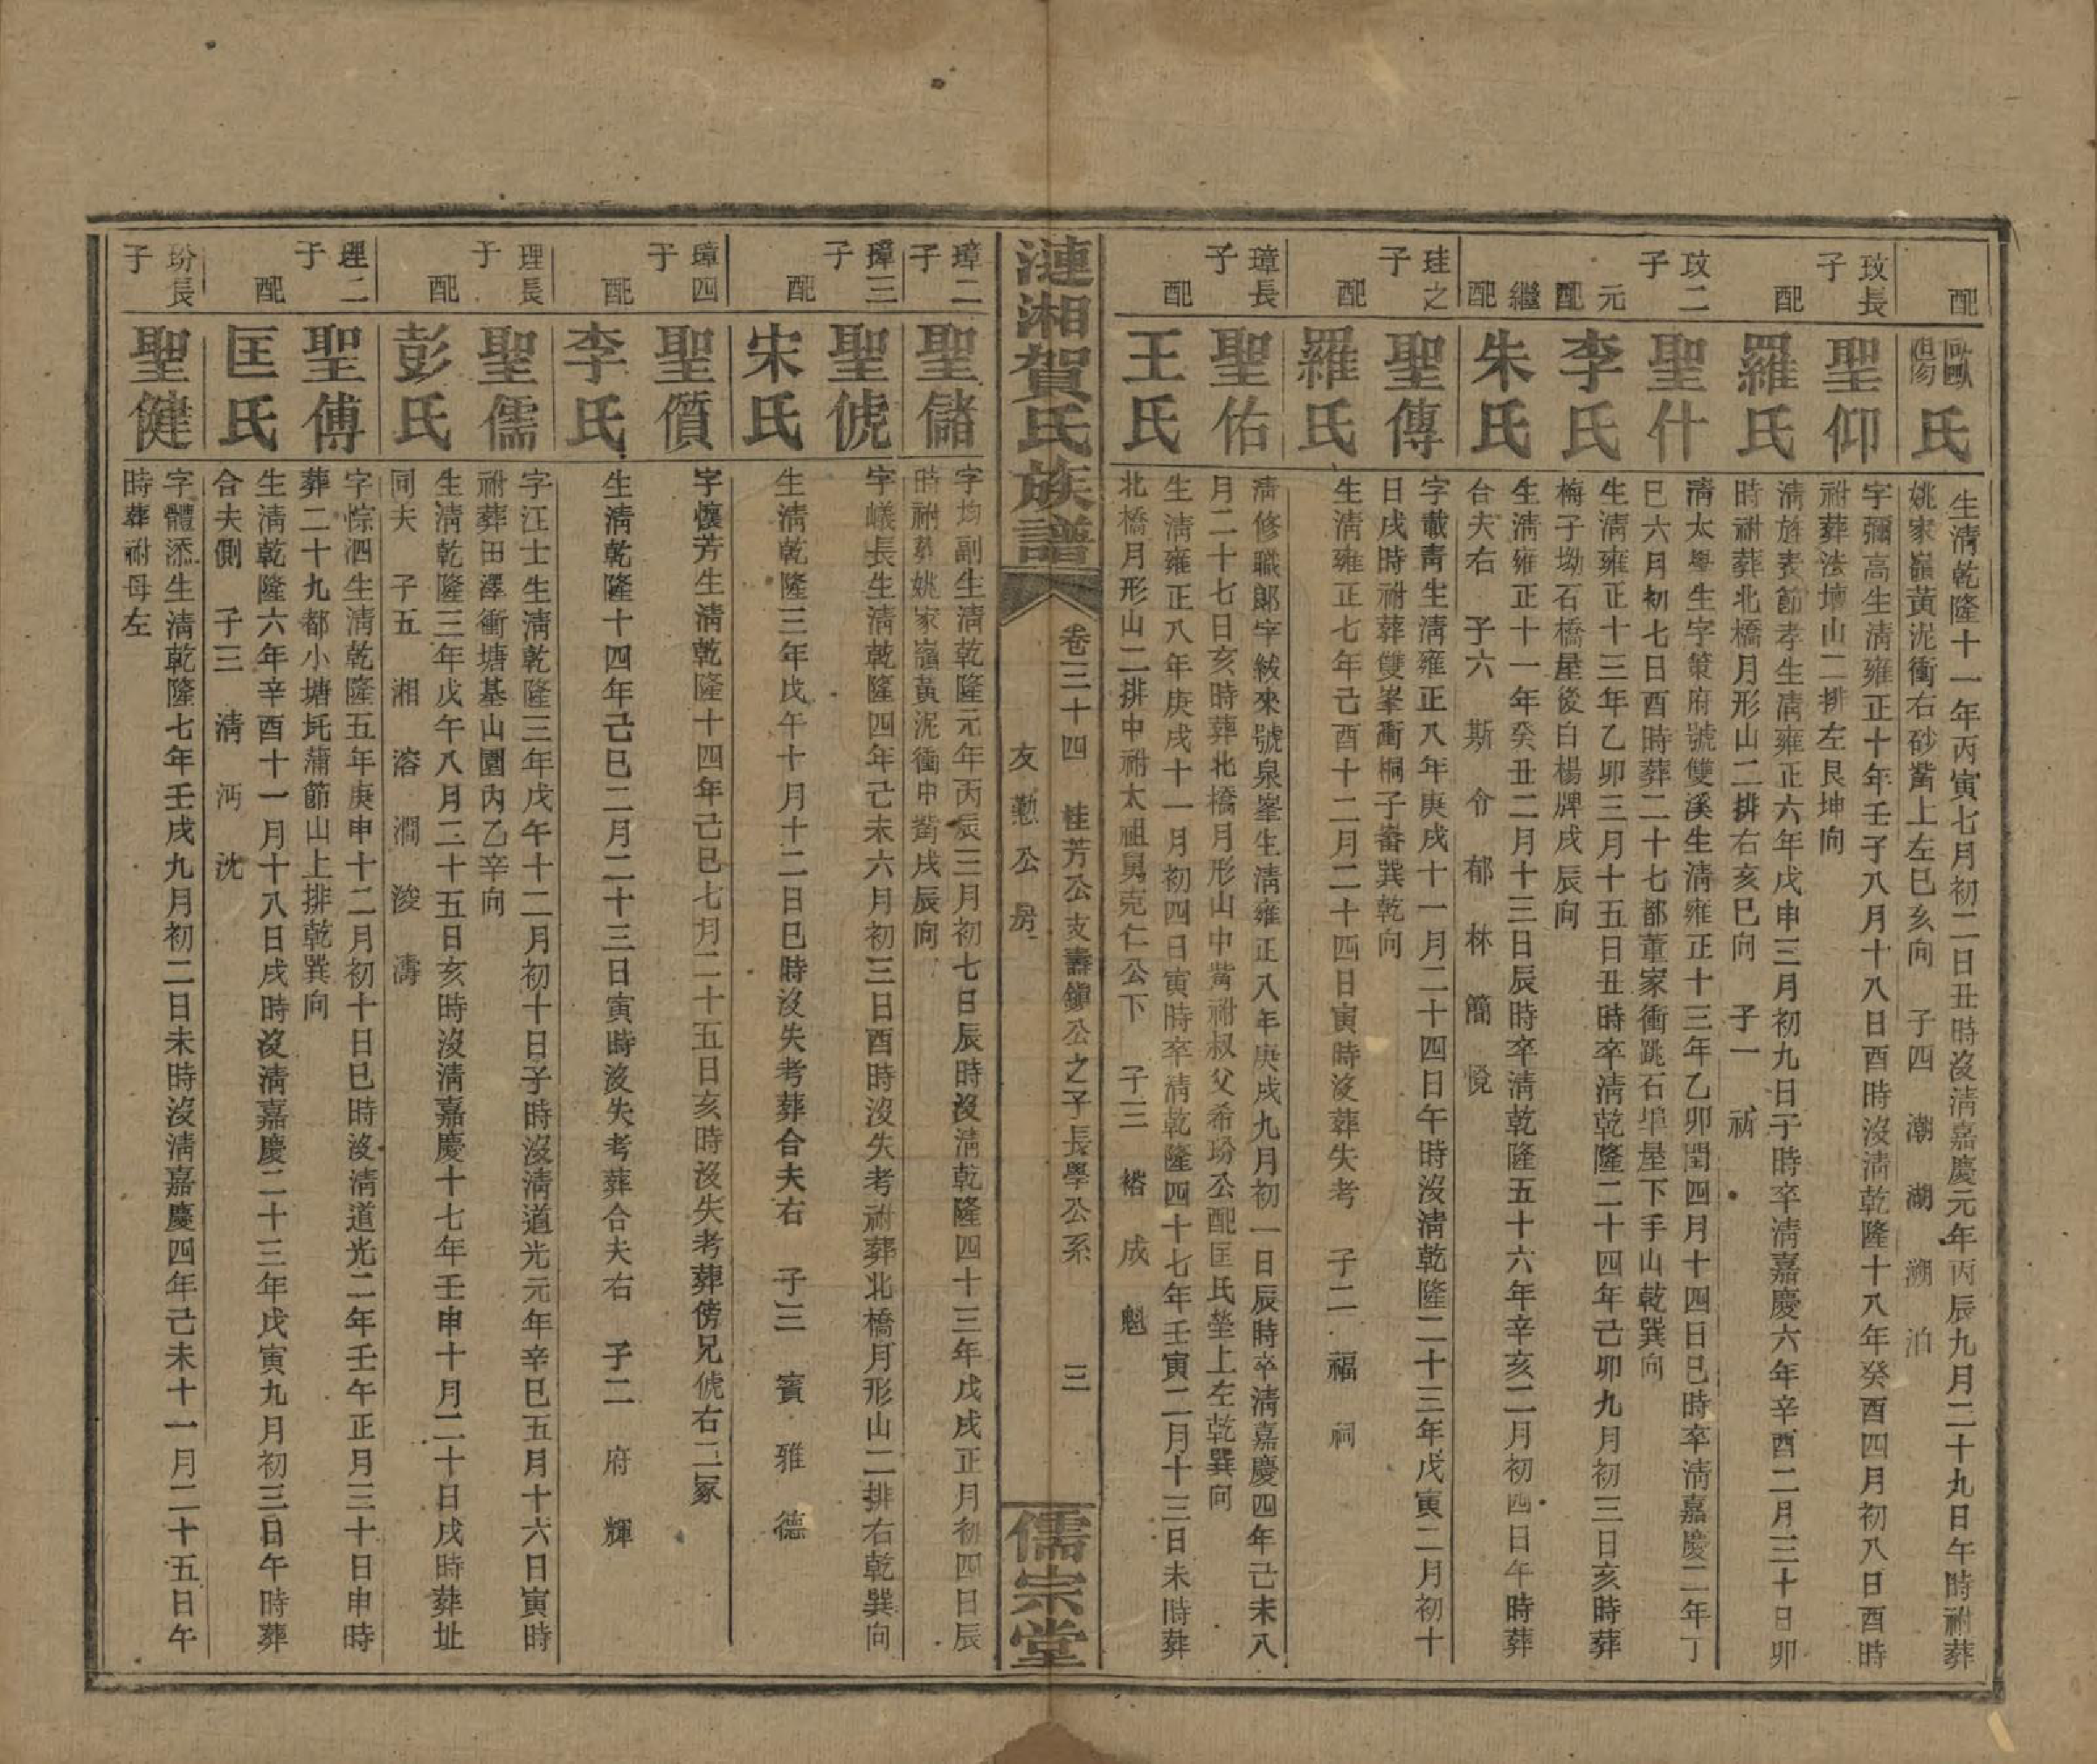 配
歐陽氏
生清乾隆十一年丙寅七月初二日丑時沒清嘉慶元年丙辰九月二十九日午時祔葬
姚家嶺黃泥衝右砂觜上左巳亥向 子四 潮 湖 溯 泊
玫長子
聖仰
字彌高生清雍正十年壬子八月十八日酉時沒清乾隆十八年癸酉四月初八日酉時
祔葬法壇山二排左艮坤向
配
羅氏
清旌表節孝生清雍正六年戊申三月初九日子時卒清嘉慶六年辛酉二月三十日卯
時祔葬北橋月形山二排右亥巳向 子一 祔
玫二子
聖什
清太學生字策府號雙溪生清雍正十三年乙卯閏四月十四日巳時卒清嘉慶二年丁
巳六月初七日酉時葬二十七都董家衝跳石埠屋下手山乾巽向
元配
李氏
生清雍正十三年乙卯三月十五日丑時卒清乾隆二十四年己卯九月初三日亥時葬
梅子坳石橋屋後白楊牌戌辰向
繼配
朱氏
生清雍正十一年癸丑二月十三日辰時卒清乾隆五十六年辛亥二月初四日午時葬
合夫右 子六 斯 令 郁 林 簡 悅
珪之子
聖傳
字載青生清雍正八年庚戌十一月二十四日午時沒清乾隆二十三年戊寅二月初十
日戌時祔葬雙峯衝桐子崙巽乾向
配
羅氏
生清雍正七年己酉十二月二十四日寅時沒葬失考 子二 福 祠
璋長子
聖佑
清修職郎字紱來號泉峯生清雍正八年庚戌九月初一日辰時卒清嘉慶四年己未八
月二十七日亥時葬北橋月形山中觜祔叔父希玢公配匡氏塋上左乾巽向
配
王氏
生清雍正八年庚戌十一月初四日寅時卒清乾隆四十七年壬寅二月十三日未時葬
北橋月形山二排中祔太祖舅克仁公下 子三 褚 成 魁
漣湘賀氏族譜
卷三十四 桂芳公支壽鎮公之子長學公系 三
友懃公房
儒宗堂
璋二子
聖儲
字均副生清乾隆元年丙辰三月初七日辰時沒清乾隆四十三年戊戌正月初四日辰
時祔葬姚家嶺黃泥衝中觜戌辰向
璋三子
聖俿
字嶬長生清乾隆四年己未六月初三日酉時沒失考祔葬北橋月形山二排右乾巽向
配
宋氏
生清乾隆三年戊午十月十二日巳時沒失考葬合夫右 子三 賓 雅 德
璋四子
聖儨
字懷芳生清乾隆十四年己巳七月二十五日亥時沒失考葬傍兄俿右二冢
配
李氏
生清乾隆十四年己巳二月二十三日寅時沒失考葬合夫右 子二 府 輝
理長子
聖儒
字江士生清乾隆三年戊午十二月初十日子時沒清道光元年辛巳五月十六日寅時
祔葬田澤衝塘基山圍內乙辛向
配
彭氏
生清乾隆三年戊午八月二十五日亥時沒清嘉慶十七年壬申十月二十日戌時葬址
同夫 子五 湘 溶 澗 浚 濤
理二子
聖傅
字悰泗生清乾隆五年庚申十二月初十日巳時沒清道光二年壬午正月三十日申時
葬二十九都小塘圫蒲節山上排乾巽向
配
匡氏
生清乾隆六年辛酉十一月十八日戌時沒清嘉慶二十三年戊寅九月初三日午時葬
合夫側 子三 清 沔 沈
玢長子
聖健
字體添生清乾隆七年壬戌九月初二日未時沒清嘉慶四年己未十一月二十五日午
時葬祔母左